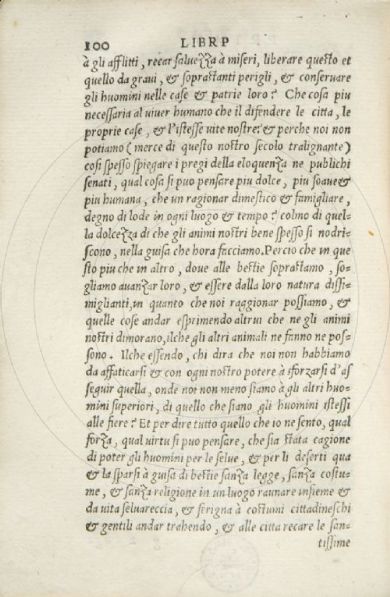 100 LIBRP
à gli afflitti, recar saluezza à miseri, liberare questo et
quello da graui, & soprastanti perigli, & conseruare
gli huomini nelle case & patrie loro? Che cosa piu
necessaria al uiuer humano che il difendere le citta, le
proprie case, & l'istesse uite nostre? & perche noi non
potiamo (merce di questo nostro secolo tralignante)
cosi spesso spiegare i pregi della eloquenza ne publichi
senati, qual cosa si puo pensare piu dolce, piu soaue &
piu humana, che un ragionar dimestico & famigliare,
degno di lode in ogni luogo & tempo? colmo di quel-
la dolcezza di che gli animi nostri bene spesso si nodri-
scono, nella guisa che hora facciamo. Perciò che in que
sto piu che in altro, doue alle bestie soprastamo, so-
gliamo auanzar loro, & essere dalla loro natura dissi-
miglianti, in quanto che noi raggionar possiamo, &
quelle cose andar esprimendo altrui che ne gli animi
nostri dimorano, ilche gli altri animali ne fanno ne pos-
sono. Ilche essendo, chi dira che noi non habbiamo
da affaticarsi & con ogni nostro potere à sforzarsi d'as
seguir quella, onde noi non meno siamo à gli altri huo-
mini superiori, di quello che siano gli huomini istessi
alle fiere? Et per dire tutto quello che io ne sento, qual
forza, qual uirtu si puo pensare, che sia stata cagione
di poter gli huomini per le selue, & per li deserti qua
& la sparsi à guisa di bestie sanza legge, sanza costu-
me, & sanza religione in un luogo raunare insieme &
da uita seluareccia, & ferigna à costumi cittadineschi
& gentili andar trahendo, & alle citta recare le san-
tissime